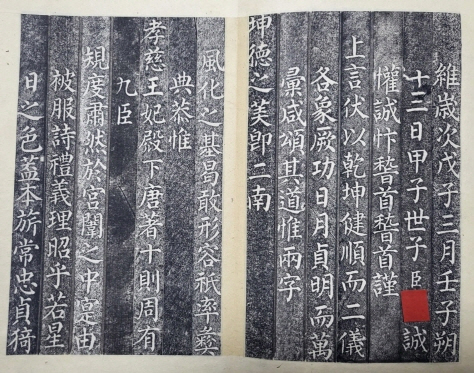 維歲次戊子三月壬子朔
十三日甲子世子臣誠
懽誠忭稽首稽首謹
上言伏以乾坤健順而二儀
各象厥功日月貞明而萬
彙咸頌其道惟兩字
坤德之美即二南
風化之基曷敢形容祗率彝
典恭惟
孝慈王妃殿下唐著十則周有
九臣
規度肅然於宮闈之中寔由
被服詩禮義理昭乎若星
日之色蓋本旂常忠貞猗